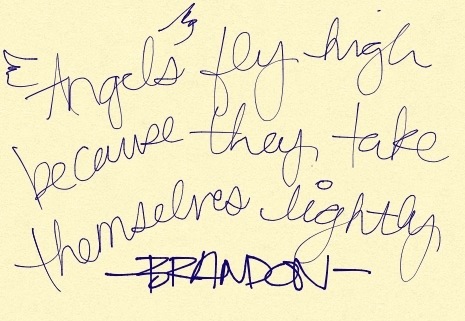 Angels fly high
because they take
themselves lightly
-BRANDON-